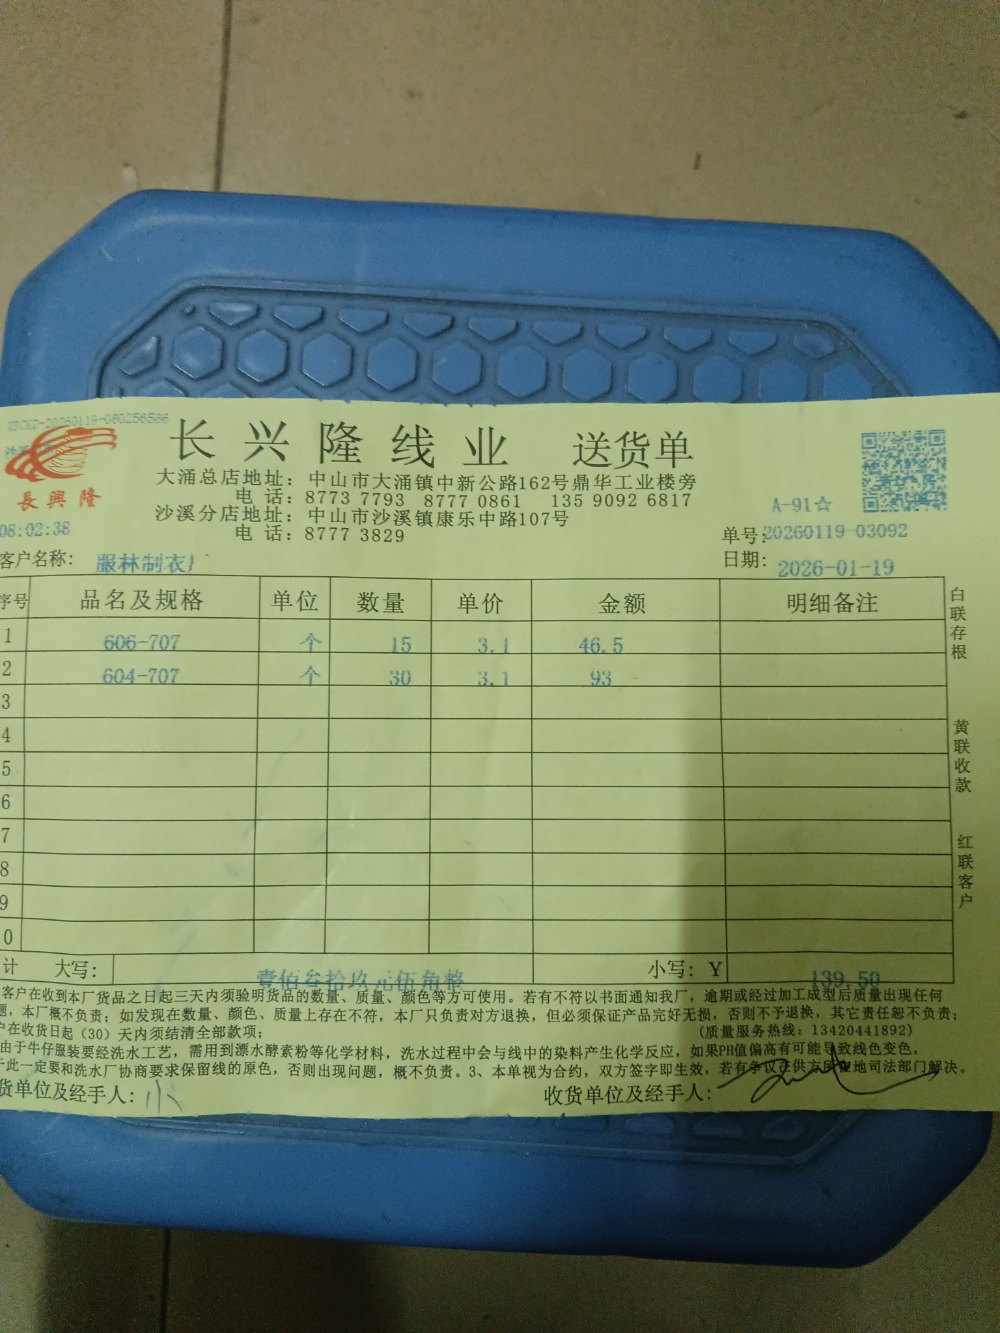 XSCKD-20260119-080256586
長興隆
08:02:38
长兴隆线业 送货单
大涌总店地址：中山市大涌镇中新公路162号鼎华工业楼旁
电 话：8773 7793 8777 0861 135 9092 6817
沙溪分店地址：中山市沙溪镇康乐中路107号
电 话：8777 3829
A-91☆
单号:20260119-03092
日期: 2026-01-19
客户名称: 服林制衣厂
序号 品名及规格 单位 数量 单价 金额 明细备注
1 606-707 个 15 3.1 46.5
2 604-707 个 30 3.1 93
3
4
5
6
7
8
9
0
计 大写: 壹佰叁拾玖元伍角整 小写: Y 139.50
白联存根
黄联收款
红联客户
客户在收到本厂货品之日起三天内须验明货品的数量、质量、颜色等方可使用。若有不符以书面通知我厂，逾期或经过加工成型后质量出现任何
题，本厂概不负责；如发现在数量、颜色、质量上存在不符，本厂只负责对方退换，但必须保证产品完好无损，否则不予退换，其它责任恕不负责；
户在收货日起（30）天内须结清全部款项； （质量服务热线：13420441892）
由于牛仔服装要经洗水工艺，需用到漂水酵素粉等化学材料，洗水过程中会与线中的染料产生化学反应，如果PH值偏高有可能导致线色变色，
于此一定要和洗水厂协商要求保留线的原色，否则出现问题，概不负责。3、本单视为合约，双方签字即生效，若有争议在供方所在地司法部门解决。
货单位及经手人：小 收货单位及经手人：